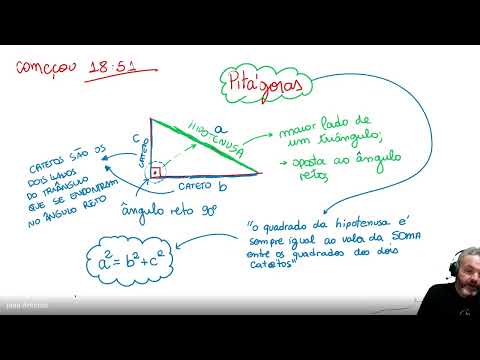 comcçou 18:51
Pitágoras
maior lado de
um triângulo;
oposta ao ângulo
reto;
HIPOTENUSA
a
c
CATETO
CATETO b
CATETOS SÃO OS
DOIS LADOS
DO TRIÂNGULO
QUE SE ENCONTRAM
NO ÂNGULO RETO
ângulo reto 90º
a² = b² + c²
"o quadrado da hipotenusa é
sempre igual ao valor da SOMA
entre os quadrados dos dois
catetos"